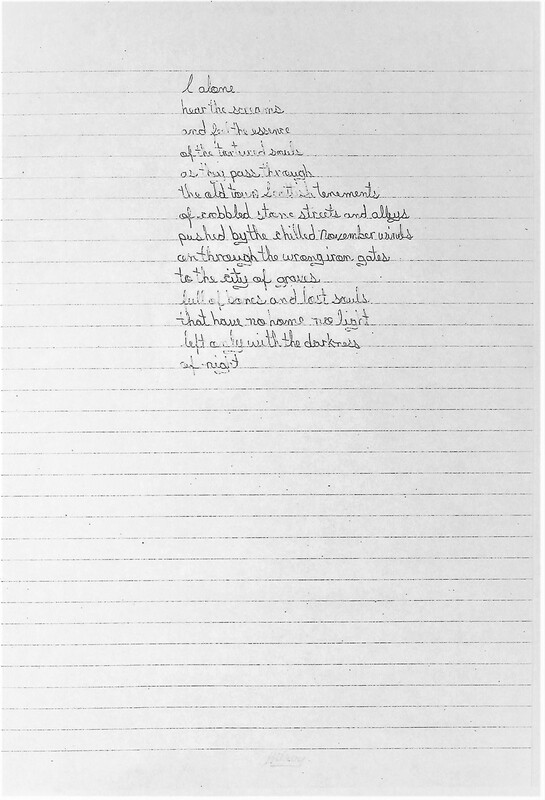 I alone
hear the screams
and feel the essence
of the tortured souls
as they pass through
the old town Scottish tenements
of cobbled stone streets and alleys
pushed by the chilled November winds
on through the wrong iron gates
to the city of graves
full of bones and lost souls
that have no home no light
left only with the darkness
of night